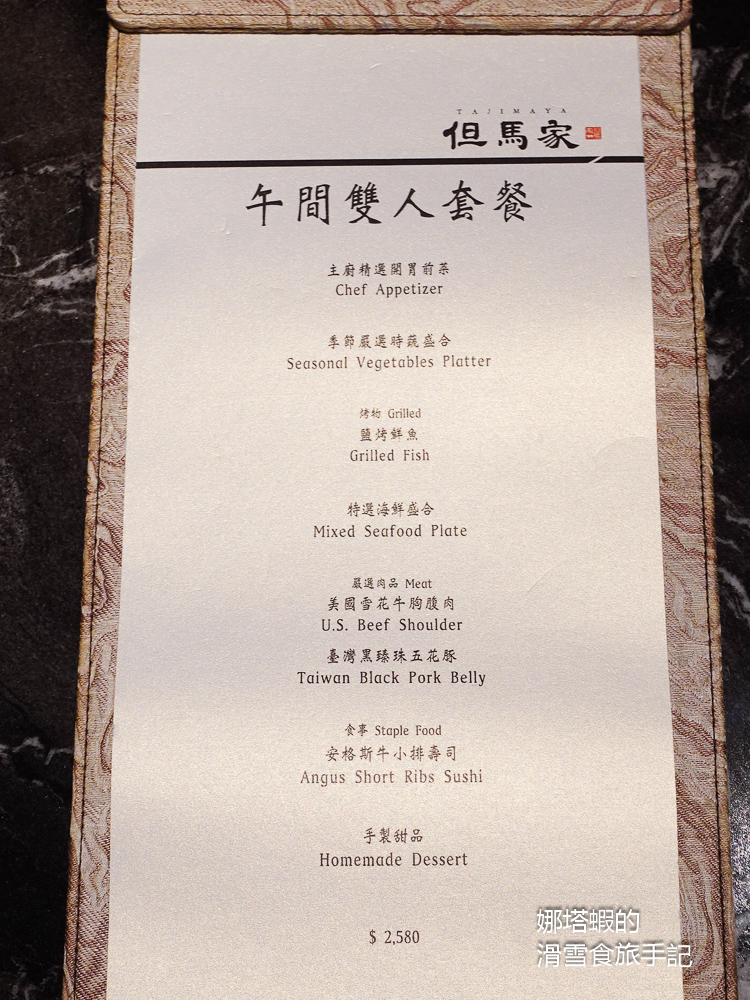 TAJIMAYA
但馬家
午間雙人套餐
主廚精選開胃前菜
Chef Appetizer
季節嚴選時蔬盛合
Seasonal Vegetables Platter
烤物 Grilled
鹽烤鮮魚
Grilled Fish
特選海鮮盛合
Mixed Seafood Plate
嚴選肉品 Meat
美國雪花牛胸腹肉
U.S. Beef Shoulder
臺灣黑臻珠五花豚
Taiwan Black Pork Belly
食事 Staple Food
安格斯牛小排壽司
Angus Short Ribs Sushi
手製甜品
Homemade Dessert
$ 2,580
娜塔蝦的
滑雪食旅手記